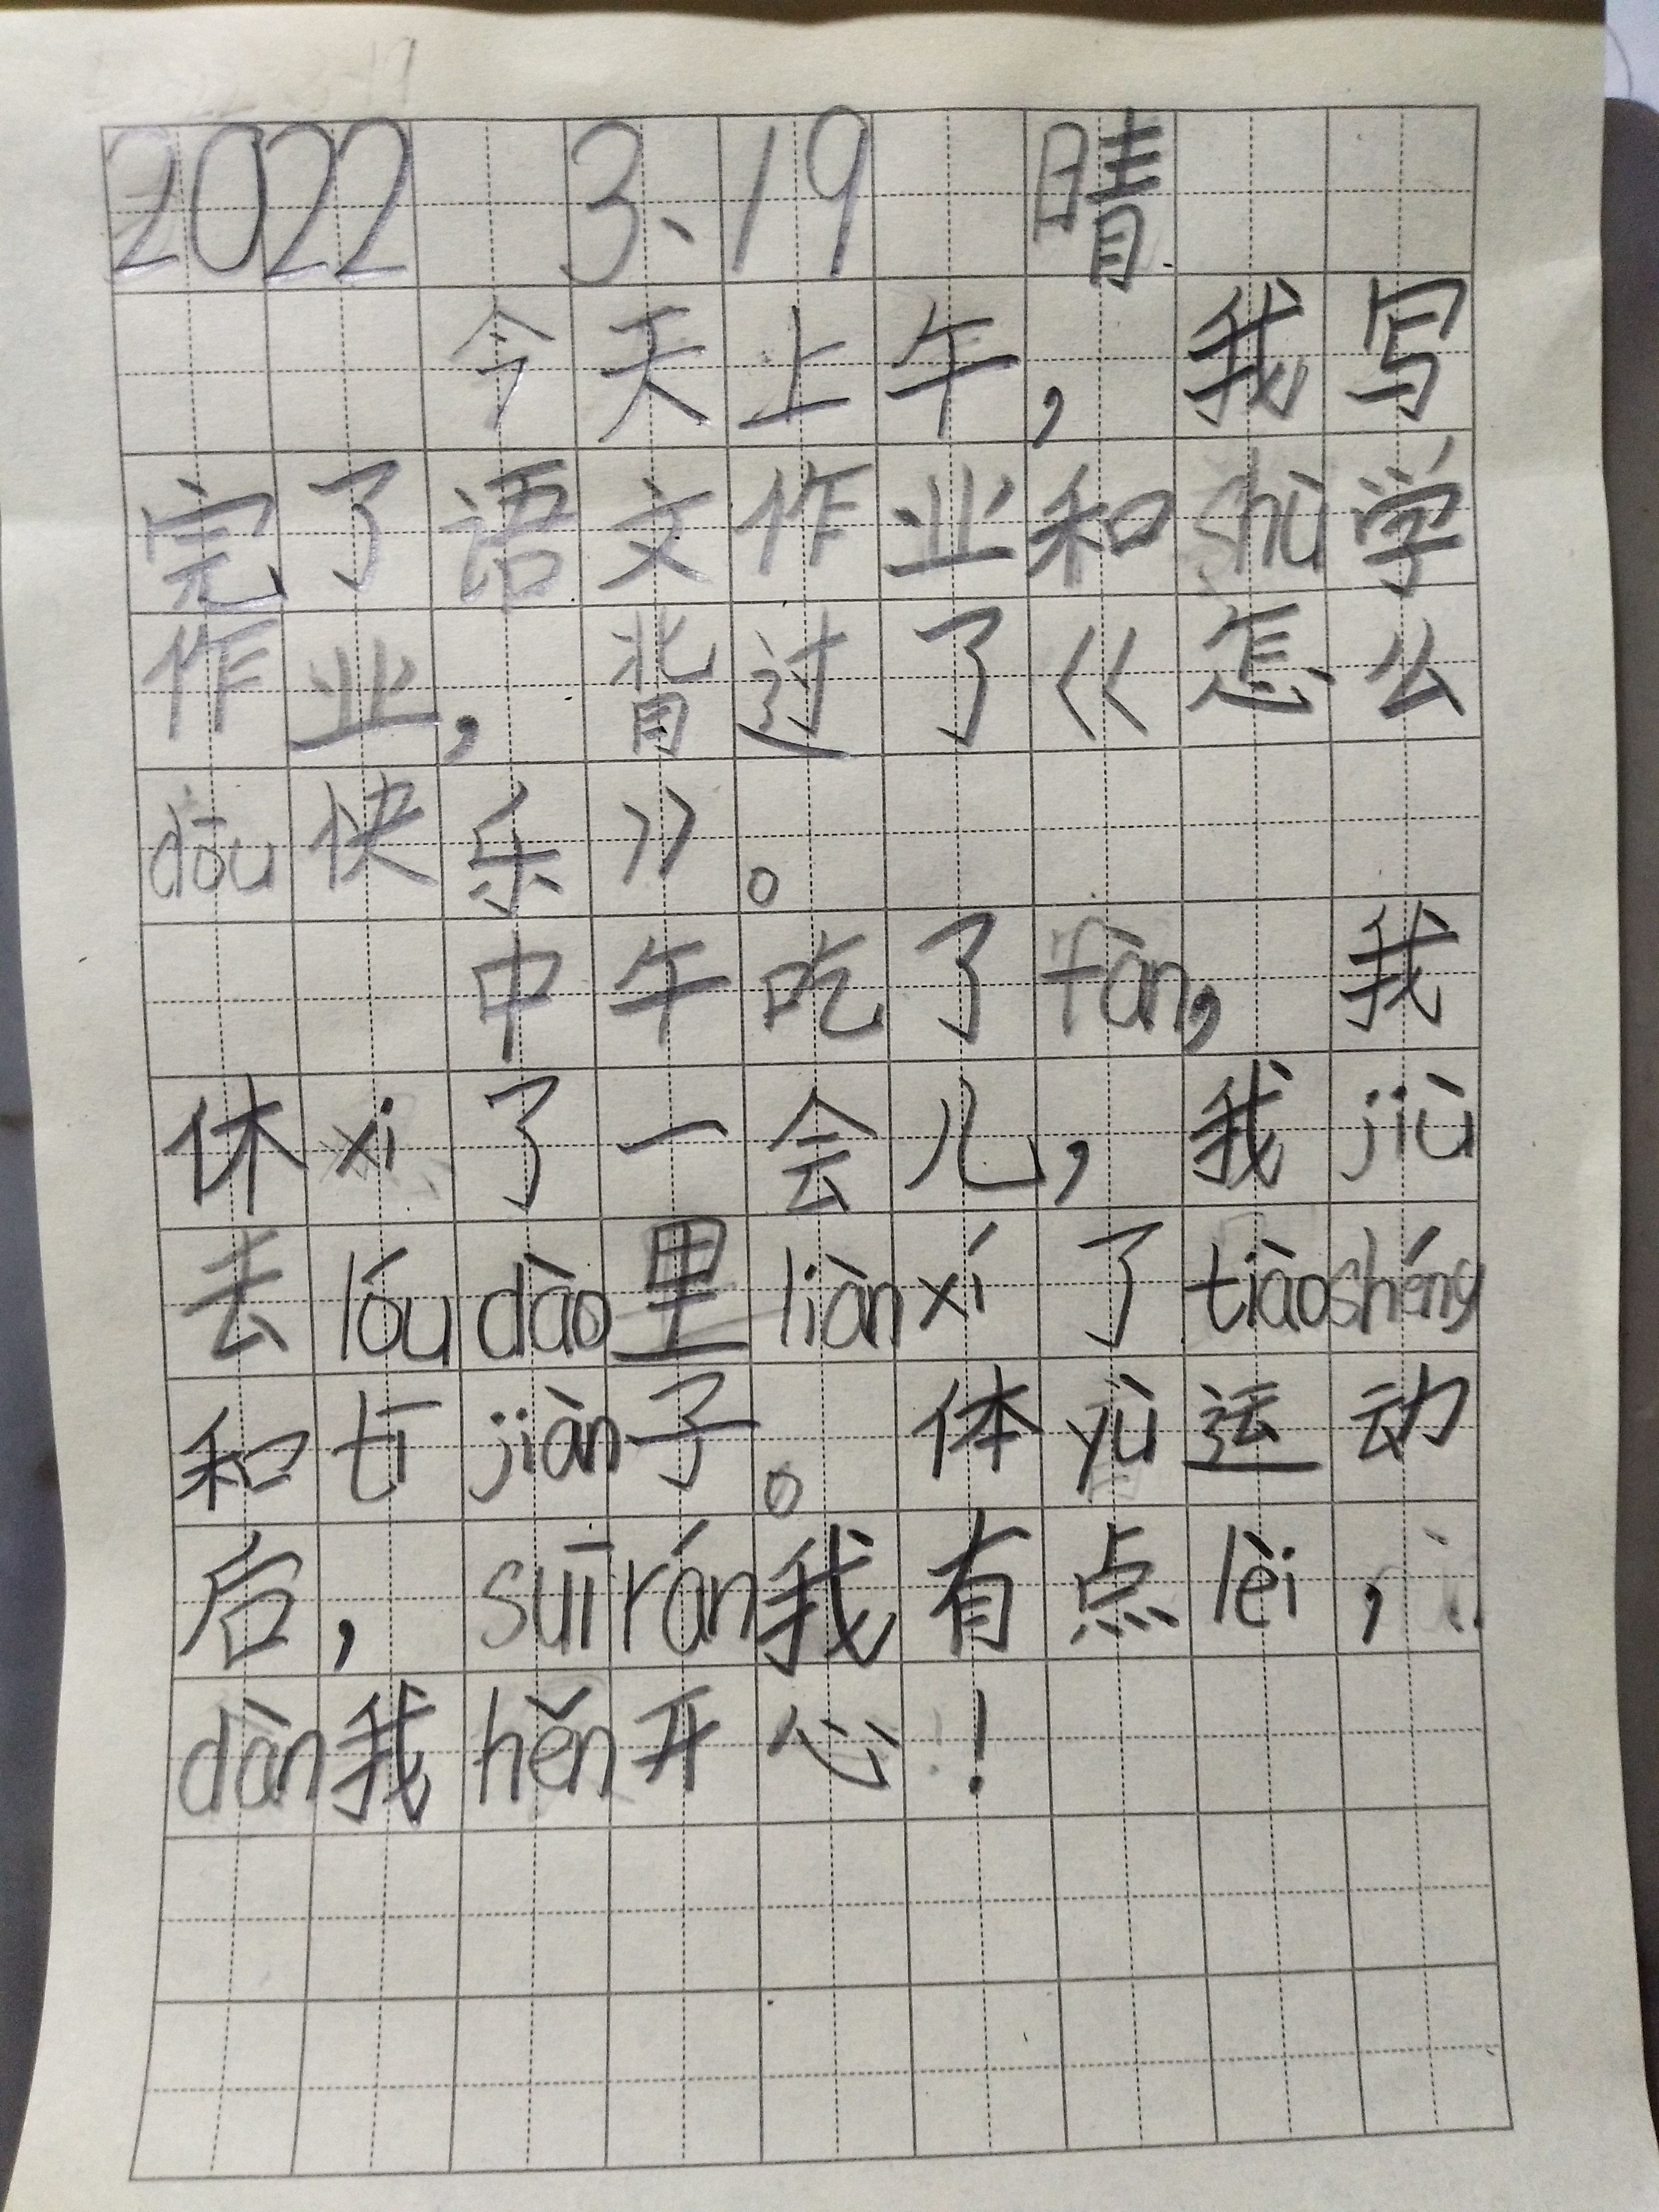 2022 3、19 晴
今天上午，我写
完了语文作业和shù学
作业，背过了《怎么
dōu快乐》。
中午吃了fàn，我
休xi了一会儿，我jiù
去lóudào里liànxí了tiàoshéng
和tījiàn子。体yù运动
后，suīrán我有点lèi，
dàn我hěn开心！